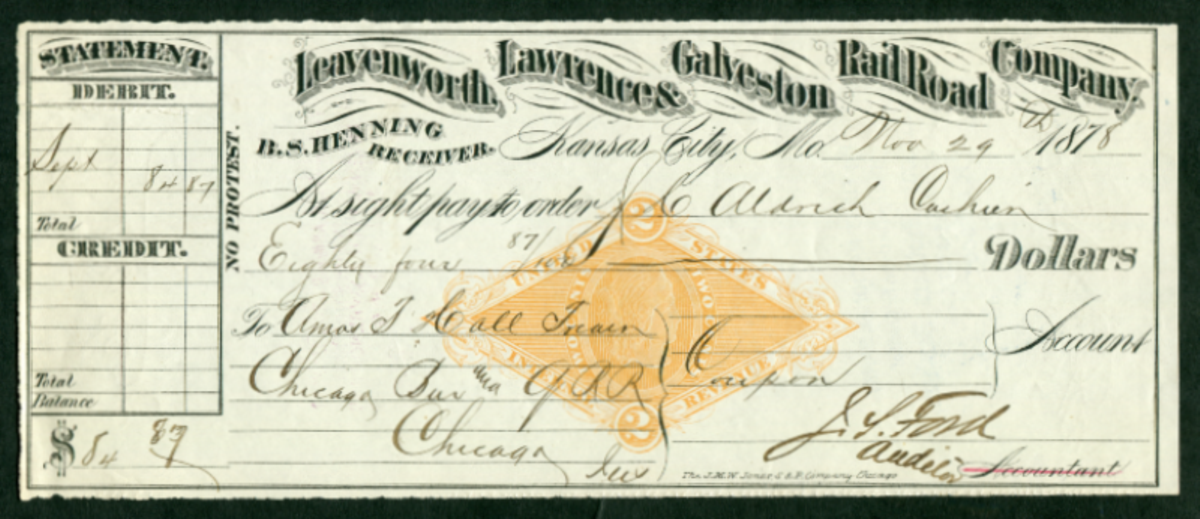 STATEMENT.
DEBIT.
Sept 84 87
Total
CREDIT.
Total
Balance
$ 84 87
NO PROTEST.
Leavenworth, Lawrence & Galveston Rail Road Company.
B.S. HENNING RECEIVER.
Kansas City, Mo. Nov 29th 1878
At sight pay to order J C Aldrich Cashier
Eighty four 87/100 Dollars
To Amos T Hall Treas
Chicago Bur and Q R R
Chicago
Coupon Account
J. S. Ford
Auditor Accountant
The J.M.W. Jones S. & P. Company, Chicago
2
UNITED STATES
TWO CENTS
INT. REVENUE
2